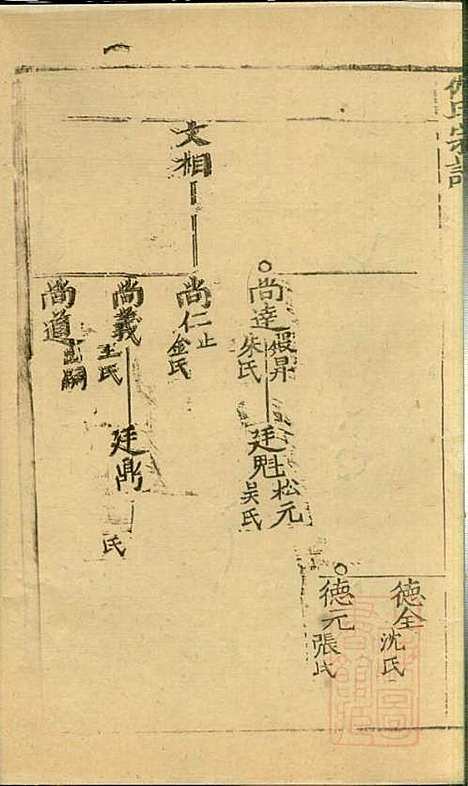 氏宗譜
德全 沈氏
德元 張氏
尚達 朱氏
廷魁 松元 吴氏
文相
尚仁 止 金氏
尚義 王氏
廷鼎 氏
尚道 嗣